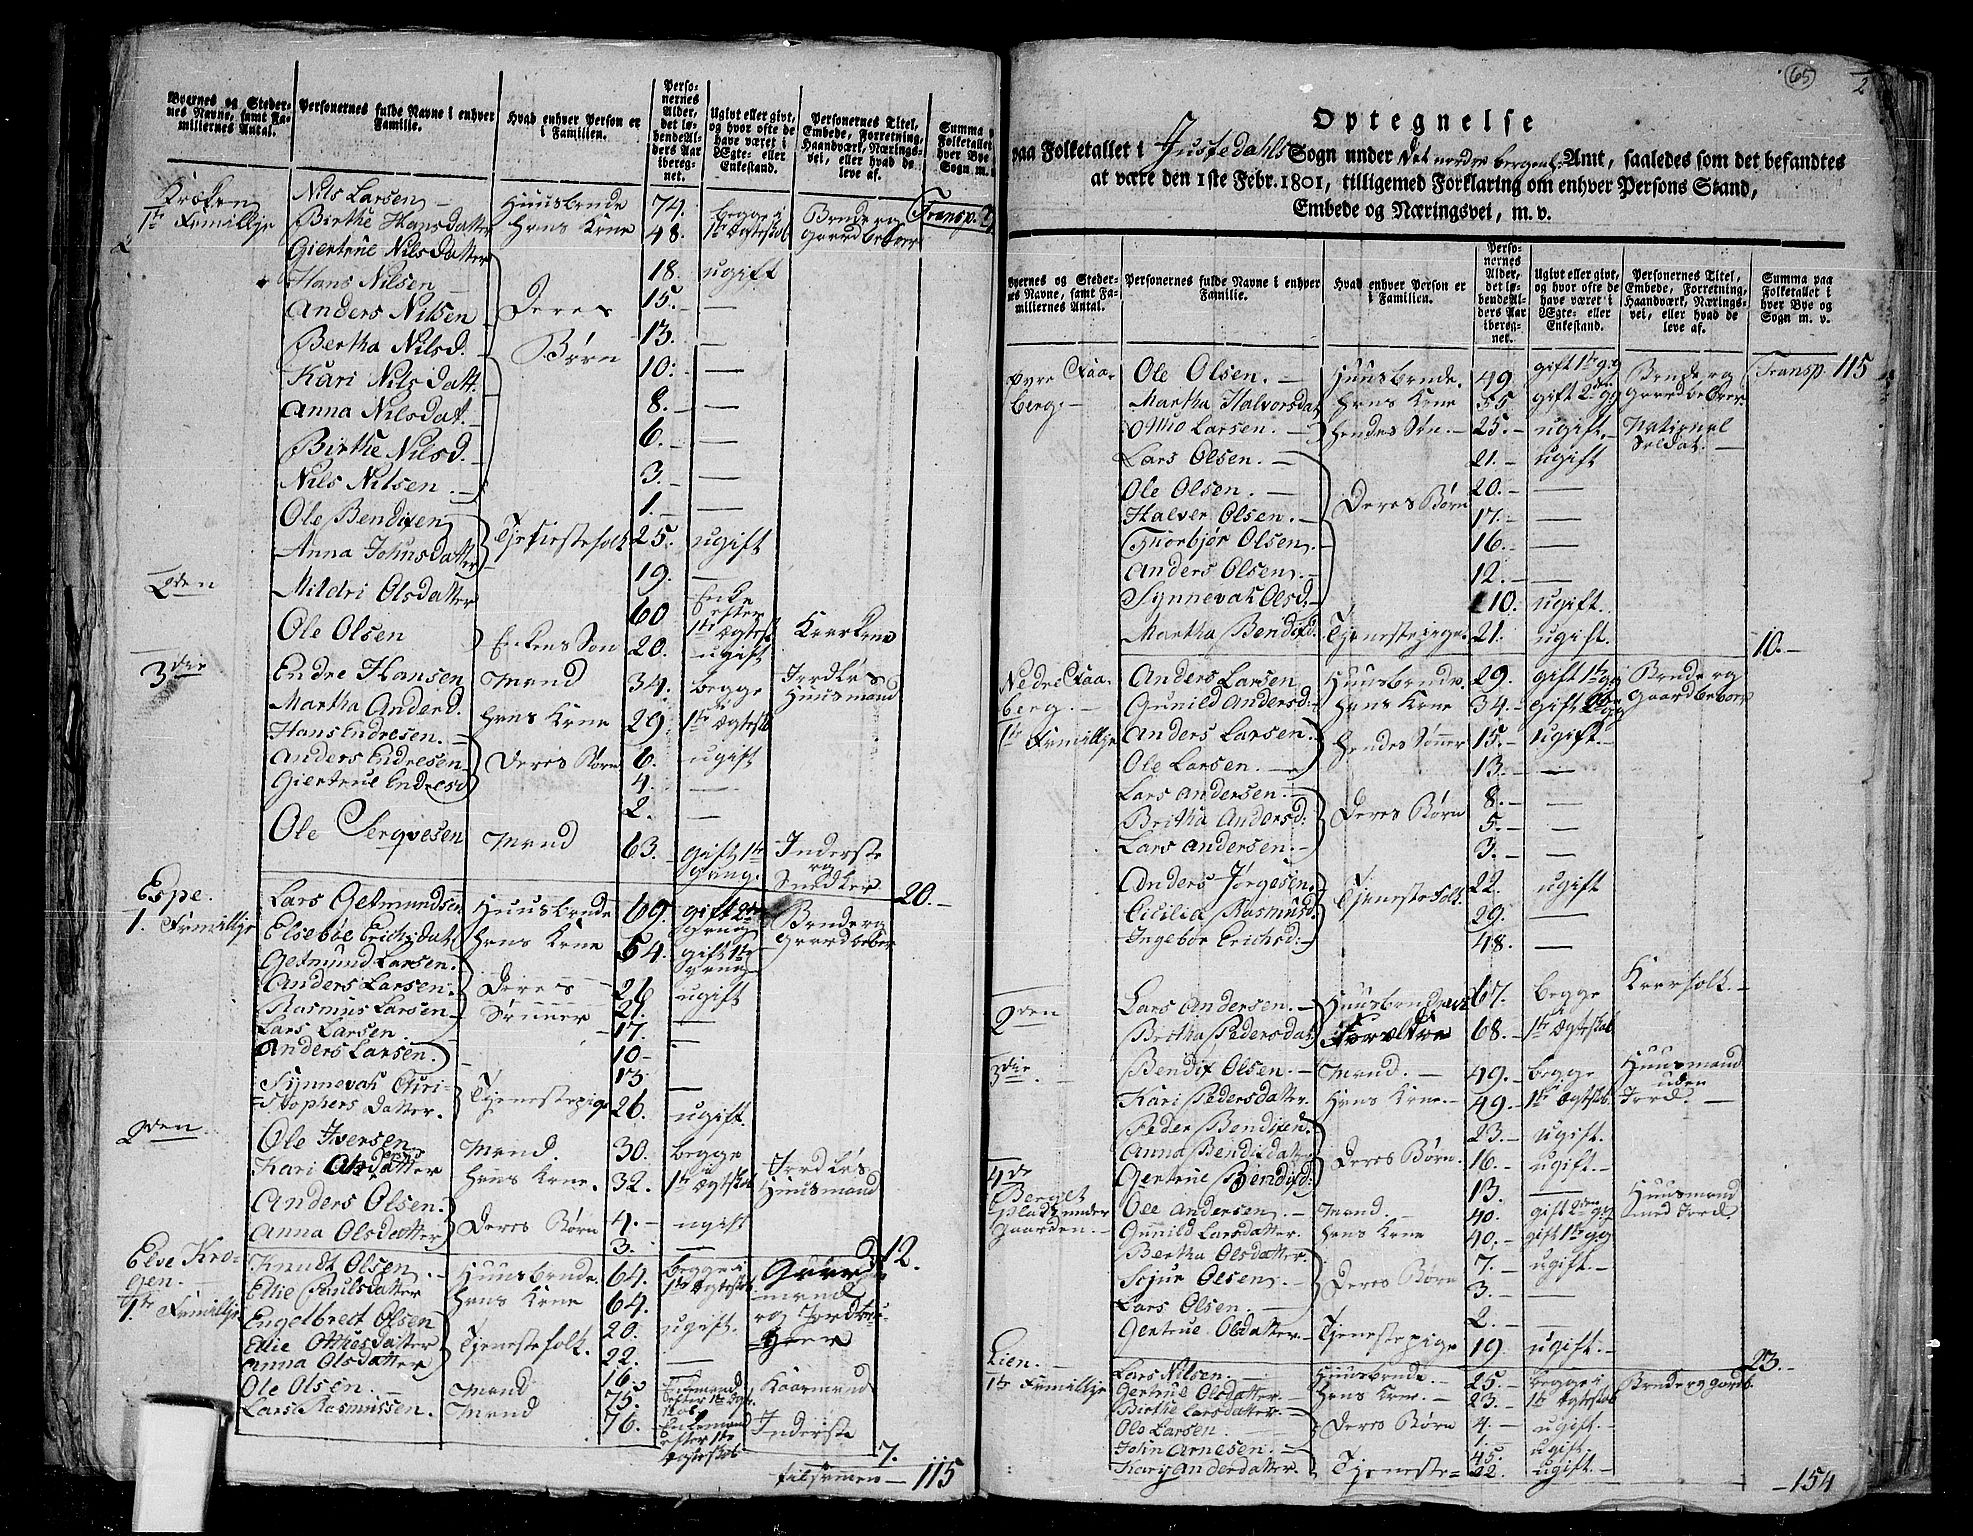 Byernes og Steder-
nes Navne, samt Fa-
miliernes Antal.
Personernes fulde Navne i enhver
Familie.
Hvad enhver Person er
i Familien.
Perso-
nernes
Alder,
det lø-
bende Al-
ders Aar
ibereg-
net.
Ugivt eller givt,
og hvor ofte de
have været i
Ægte- eller
Enkestand.
Personernes Titel,
Embede, Forretning,
Haandværk, Nærings-
vei, eller hvad de
leve af.
Summa
Folketallet
hver Bye
Sogn m.
Kroken Nils Larsen Huusbonde 74. begge i Bonde og Transp.
1te Familje Birthe Hansdatter Hans Kone 48. 1te Ægteskab Gaardbeboer
Giertrue Nilsdatter 18. ugift
Hans Nilsen 15. —
Anders Nilsen Deres 13. —
Bertha Nilsd. Børn 10. —
Kari Nilsdatt. 8. —
Anna Nilsdat. 6. —
Birthe Nilsd. 3. —
Nils Nilsen 1. —
Ole Bendixen Tjenestefolk 25. ugift
Anna Johnsdatter 19. —
2den Mildri Olsdatter 60 Enke efter 1te Ægtesk.
Ole Olsen Enkens Søn 20. ugift
3die Endre Hansen Mand 34. begge i Jordløs
Martha Anderd. Hans Kone 29. 1te Ægteskb Huusmand
Hans Endresen. 6. ugift
Anders Endresen Deres Børn 4. —
Giertrue Endresd 2. —
Ole Sergvesen Mand 63. gift 1te Gang. Inderste og Snedker 20.
Espe. Lars Gelmundsen Huusbonde 69. gift 2den Gang Bonde og
1. Familje Elsebøe Erichsdat Hans Kone 54. gift 1te Gang Gaardbeboer
Gelmund Larsen. 21. ugift
Anders Larsen. Deres 21. —
Rasmus Larsen Sønner 17. —
Lars Larsen 10 —
Anders Larsen. 13 —
Synnevah Chri-
stophers datter. Tjenestepige 26. ugift.
2den Ole Iversen Mand. 30. begge i Jordløs
Kari datter Hans Kone. 32. 1te Ægteskab Huusmand
Anders Olsen. Deres Børn 4. ugift
Anna Olsdatter 3. — 12.
Elve Kro-
gen. Knudt Olsen Huusbonde. 64. begge i
1te Familje Ellie Poulsdatter Hans Kone 64. 1te Ægteskab
Engelbrect Olsen Tjenestefolk. 20. ugift.
Ellie Otthesdatter 22. —
Anna Olsdatter 16.
Ole Olsen. Mand 75. Enkemand efter 1te Kaarmand
Lars Rasmussen. Mand 76. Enkemand efter 1te Ægteskab Inderste
7.
tilsammen 115
65
2
Optegnelse
paa Folketallet i Justedahls Sogn under det nordre bergenh. Amt, saaledes som det befandtes
at være den 1ste Febr. 1801, tilligemed Forklaring om enhver Persons Stand,
Embede og Næringsvei, m. v.
Byernes og Steder-
nes Navne, samt Fa-
miliernes Antal.
Personernes fulde Navne i enhver
Familie.
Hvad enhver Person er
i Familien.
Perso-
nernes
Alder,
det lø-
bende Al-
ders Aar
ibereg-
net.
Ugivt eller givt,
og hvor ofte de
have været i
Ægte- eller
Enkestand.
Personernes Titel,
Embede, Forretning,
Haandværk, Nærings-
vei, eller hvad de
leve af.
Summa paa
Folketallet i
hver Bye og
Sogn m. v.
Øvre Faa- Ole Olsen. Huusbonde. 49. gift 1te gg Bonde og Transp. 115
berg. Martha Halvorsdat Hans Kone 55 gift 2den gg Gaardbeboer.
Otthe Larsen. Hendes Søn. 25. ugift. National Soldat.
Lars Olsen. 21. ugift
Ole Olsen. Deres Børn 20. —
Halver Olsen. 17. —
Thorbjør Olsen. 16. —
Anders Olsen. 12. —
Synnevah Olsd. 10. ugift.
Martha Bendixd. Tjenestepige. 21. ugift. 10.
Nedre Faa- Anders Larsen Huusbonde. 29. gift 1te gg Bonde og
berg. Gunild Andersd. Hans Kone 34. gift gg Gaardbeboer
1te Familje Anders Larsen. Hendes Sønner 15. ugift.
Ole Larsen. 13. —
Lars Andersen. 8. —
Britha Andersd. Deres Børn 5. —
Lars Andersen. 3. —
Anders Jørgesen. Tjenestefolk. 22. ugift
Cicilia Rasmusd. 29. —
Ingebor Erichsd. 48. —
2den Lars Andersen. 67. begge i Kaarfolk.
Britha Pedersdat. Forældre 68. 1te Ægteskab
3die Bendix Olsen. Mand. 49. begge i Huusmand uden
Kari Pedersdatter. Hans Kone. 49. 1te Ægteskb. Jord.
Peder Bendixen. 23. ugift.
Anna Bendixdatter Deres Børn. 16. ugift.
Gertrue Bendixd. 13. —
4de
Berget
Plads under
Gaarden. Ole Andersen. Mand. 40. gift 2den gg Huusmand
Gunild Larsdatter. Hans Kone 40. gift 1te gg med Jord.
Bertha Olsdatter. 7. ugift.
Sojur Olsen. Deres Børn 3. —
Lars Olsen. 2. —
Gertrue Olsdatter. Tjenestepige 19 ugift. 23.
Lien. Lars Nilsen. Huusbonde. 25. begge i Bonde og gardb.
1te Familje Gertrue Olsdatter. Hans Kone. 23. 1te Ægteskab
Birthe Larsdatter. Deres Børn 4. ugift
Ole Larsen 1. ugift.
John Arnesen. 45. ugift.
Kari Anderdatter. Tjeneste= 22. —
154